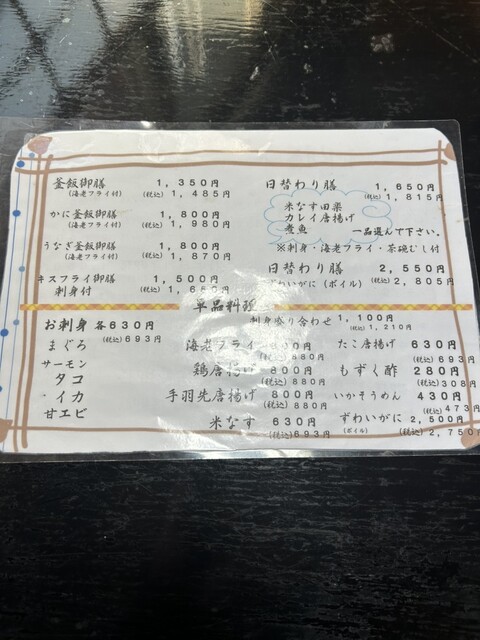 釜飯御膳 1,350円
(海老フライ付) (税込) 1,485円
かに釜飯御膳 1,800円
(海老フライ付) (税込) 1,980円
うなぎ釜飯御膳 1,800円
(海老フライ付) (税込) 1,870円
キスフライ御膳 1,500円
刺身付 (税込)
日替わり膳 1,650円
(税込) 1,815円
米なす田楽
カレイ唐揚げ
煮魚 一品選んで下さい。
※刺身・海老フライ・茶碗むし付
日替わり膳 2,550円
ずわいがに (ボイル) (税込) 2,805円
単品料理
お刺身 各630円
(税込) 693円
まぐろ
サーモン
タコ
イカ
甘エビ
刺身盛り合わせ 1,100円
(税込) 1,210円
海老フライ 800円
(税込) 880円
鶏唐揚げ 800円
(税込) 880円
手羽先唐揚げ 800円
(税込) 880円
米なす 630円
(税込) 693円
たこ唐揚げ 630円
(税込) 693円
もずく酢 280円
(税込) 308円
いかそうめん 430円
(税込) 473円
ずわいがに 2,500円
(ボイル) (税込) 2,750円